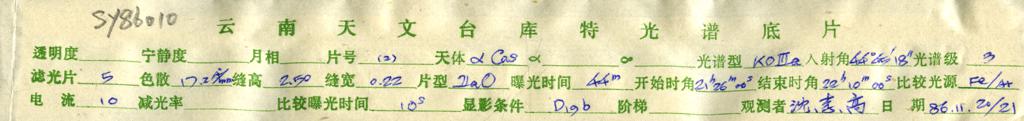 SY86010
云南天文台库特光谱底片
透明度 宁静度 月相 片号 (2) 天体 α Cas α ∞ 光谱型 K0IIa 入射角 44°26′18″ 光谱级 3
滤光片 5 色散 17.2 缝高 2.50 缝宽 0.22 片型 IIaO 曝光时间 44m 开始时角 21h26m00s 结束时角 22h10m00s 比较光源 Fe/Ar
电流 10 减光率 比较曝光时间 10s 显影条件 D19b 阶梯 观测者 沈、李、高 日期 86.11.20/21